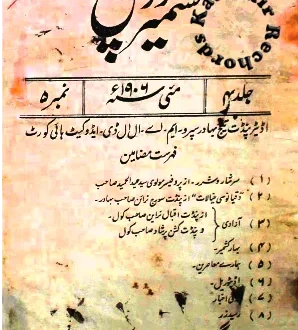 کشمیر درپن
Kashmir Rechords
جلد ۴ مئی سنہ ۱۹۰۶ء نمبر ۵
اڈیٹر پنڈت تیج بہادر سپرو - ایم - اے - ال ال ڈی - ایڈوکیٹ ہائی کورٹ
فہرست مضامین
(۱) سرشار و شرر - از پروفیسر مولوی سید عبدالحمید صاحب
(۲) "دقیانوسی خیالات" از پنڈت سورج نرائن صاحب بہادر -
(۳) آزادی - از پنڈت اقبال نراین صاحب کول -
و پنڈت کشن پرشاد صاحب کول
(۴) بہار کشمیر -
(۵) ہمارے معاصرین -
(۶) اڈیٹوریل -
(۷) اخبار
(۸) رسیدزر